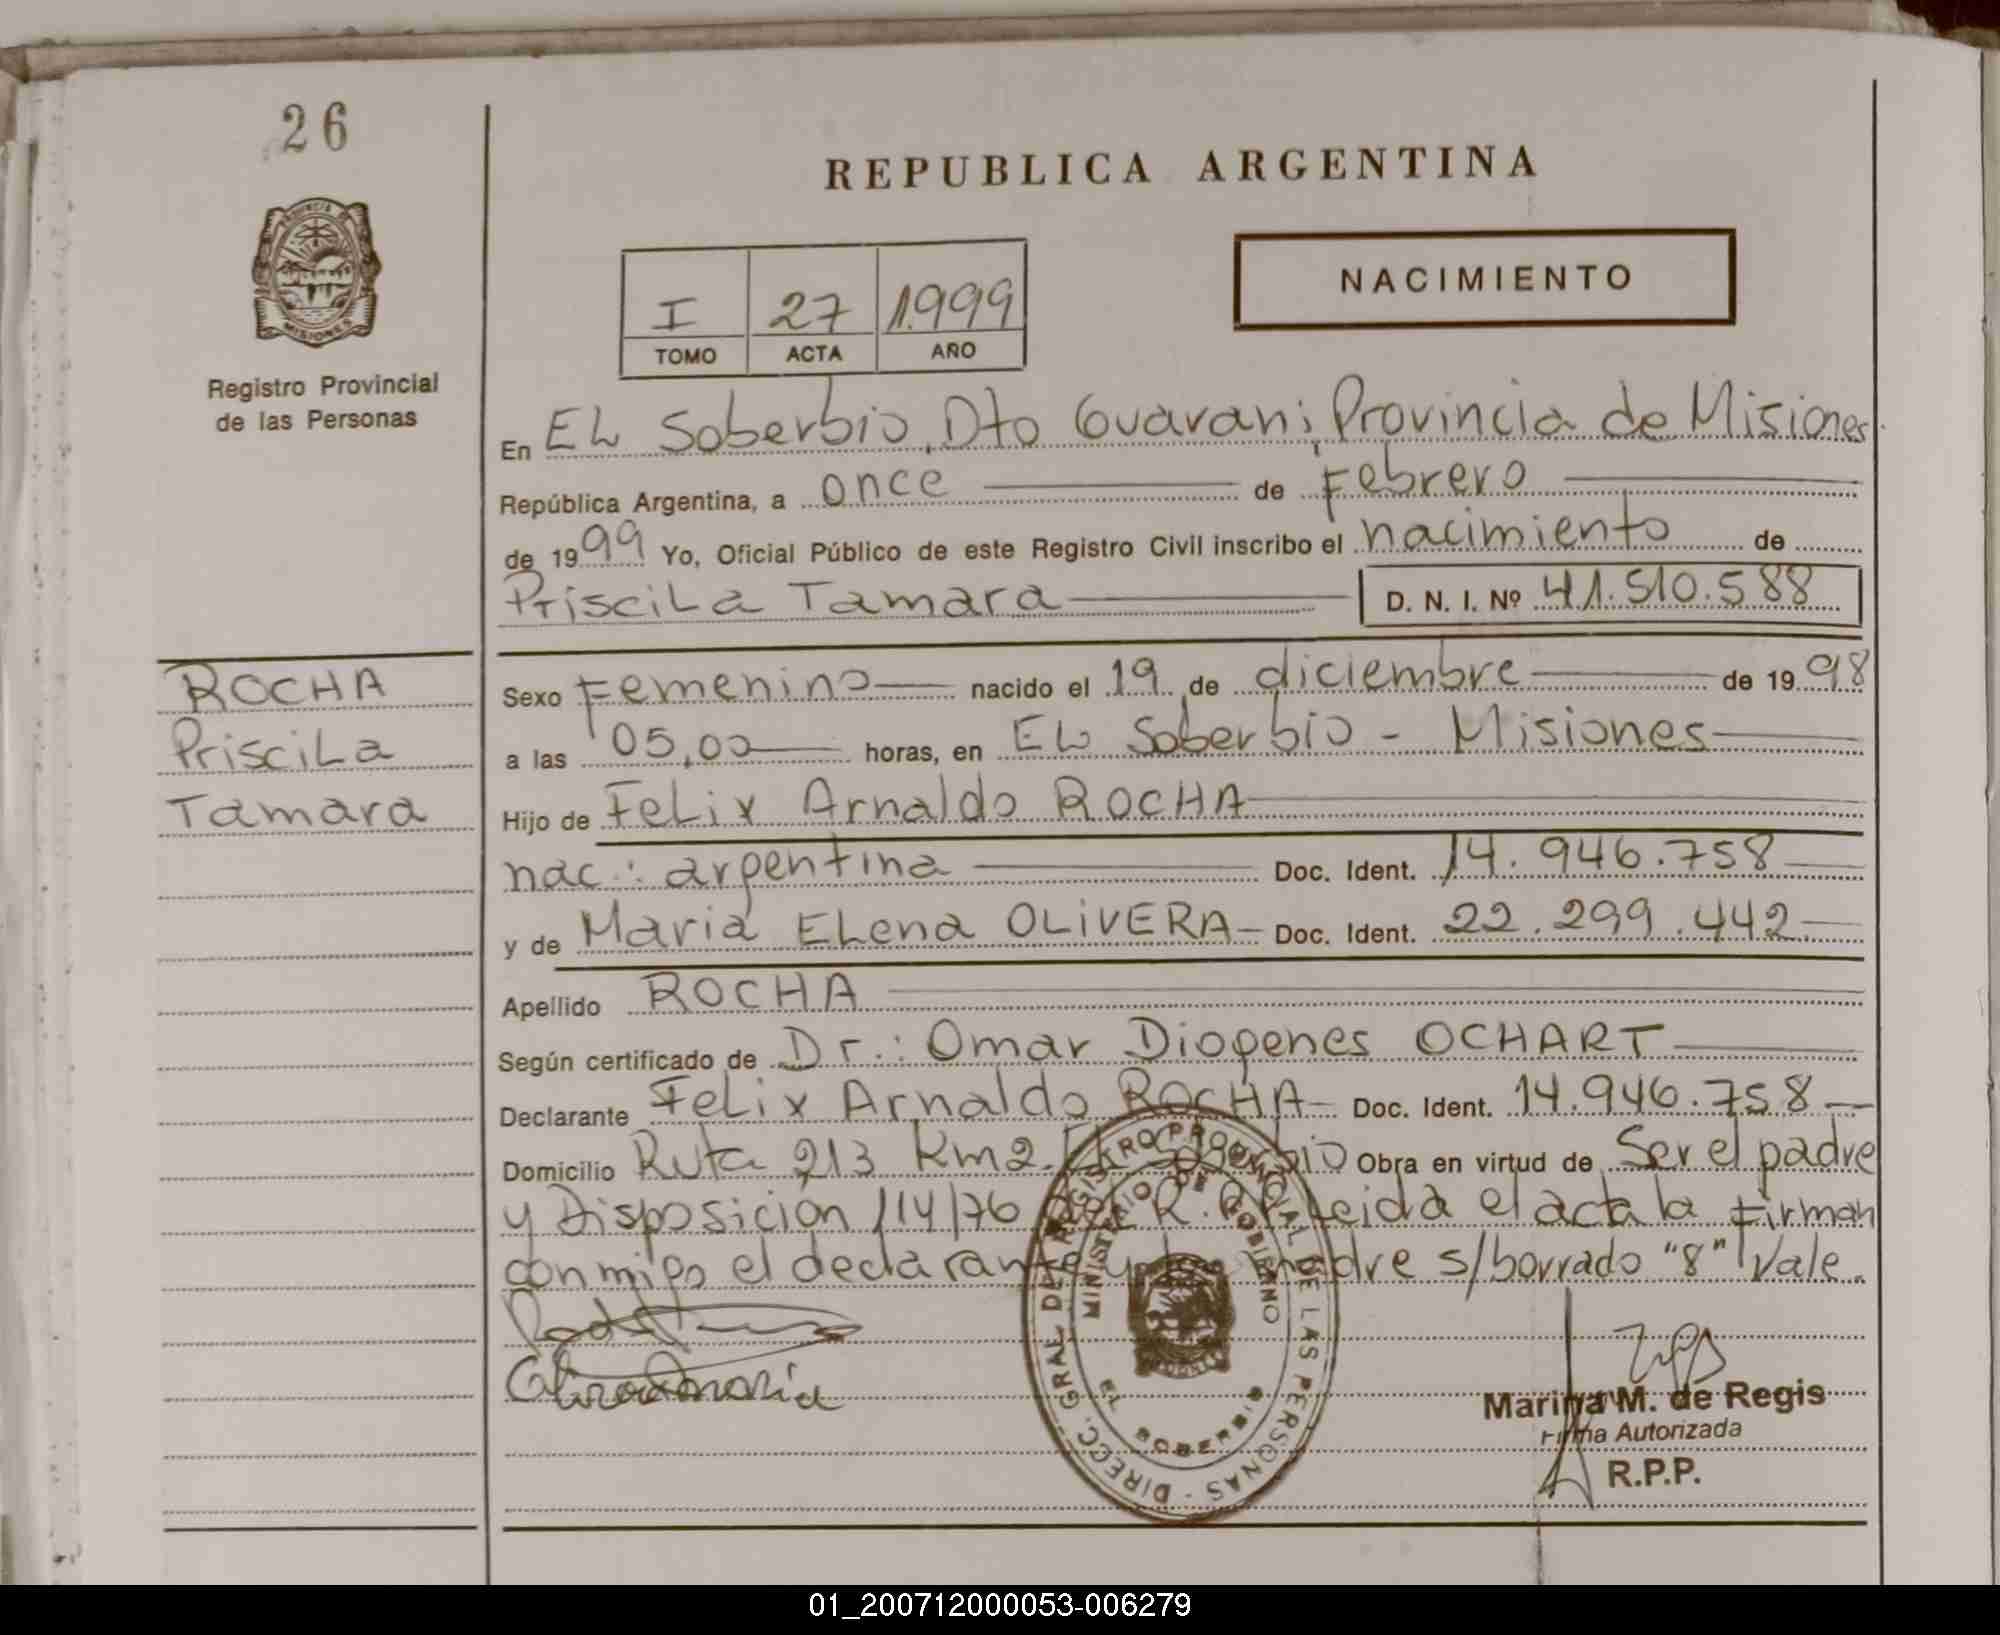 26
REPUBLICA ARGENTINA
PROVINCIA DE
MISIONES
Registro Provincial
de las Personas
I 27 1.999
TOMO ACTA AÑO
NACIMIENTO
En EL Soberbio, Dto Guarani, Provincia de Misiones
República Argentina, a once de Febrero
de 1999 Yo, Oficial Público de este Registro Civil inscribo el nacimiento de
Priscila Tamara D. N. I. Nº 41.510.588
ROCHA
Priscila
Tamara
Sexo Femenino nacido el 19 de diciembre de 1998
a las 05,00 horas, en EL Soberbio - Misiones
Hijo de Felix Arnaldo ROCHA
nac: argentina Doc. Ident. 14.946.758
y de Maria Elena OLIVERA Doc. Ident. 22.299.442
Apellido ROCHA
Según certificado de Dr.: Omar Diogenes OCHART
Declarante Felix Arnaldo ROCHA Doc. Ident. 14.946.758
Domicilio Ruta 213 Km2. El Soberbio Obra en virtud de Ser el padre
y Disposición 114/76 R. Leida el acta la firman
conmigo el declarante y la madre s/borrado "8" Vale.
DIRECC. GRAL DE REGISTRO PROVINCIAL DE LAS PERSONAS
MINISTERIO DE GOBIERNO
EL SOBERBIO
Marina M. de Regis
Firma Autorizada
R.P.P.
01_200712000053-006279